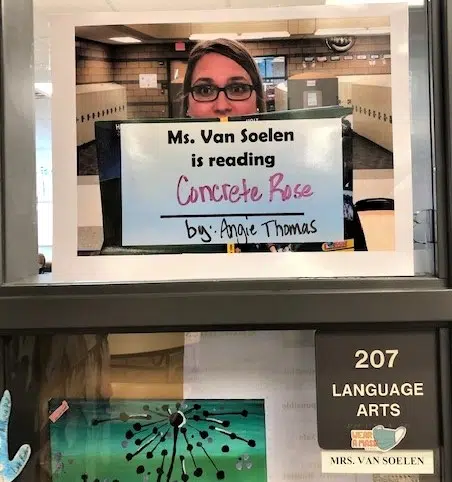 Ms. Van Soelen
is reading
Concrete Rose
by: Angie Thomas
207
LANGUAGE
ARTS
WEAR
A MASK
MRS. VAN SOELEN